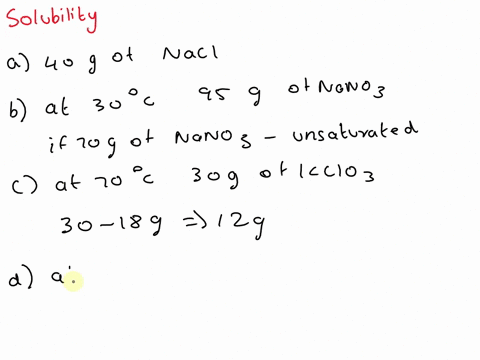 Solubility
a) 40 g of NaCl
b) at 30°c 95 g of NaNO3
if 70g of NaNO3 - unsaturated
c) at 70°c 30g of KClO3
30-18g => 12g
d) a